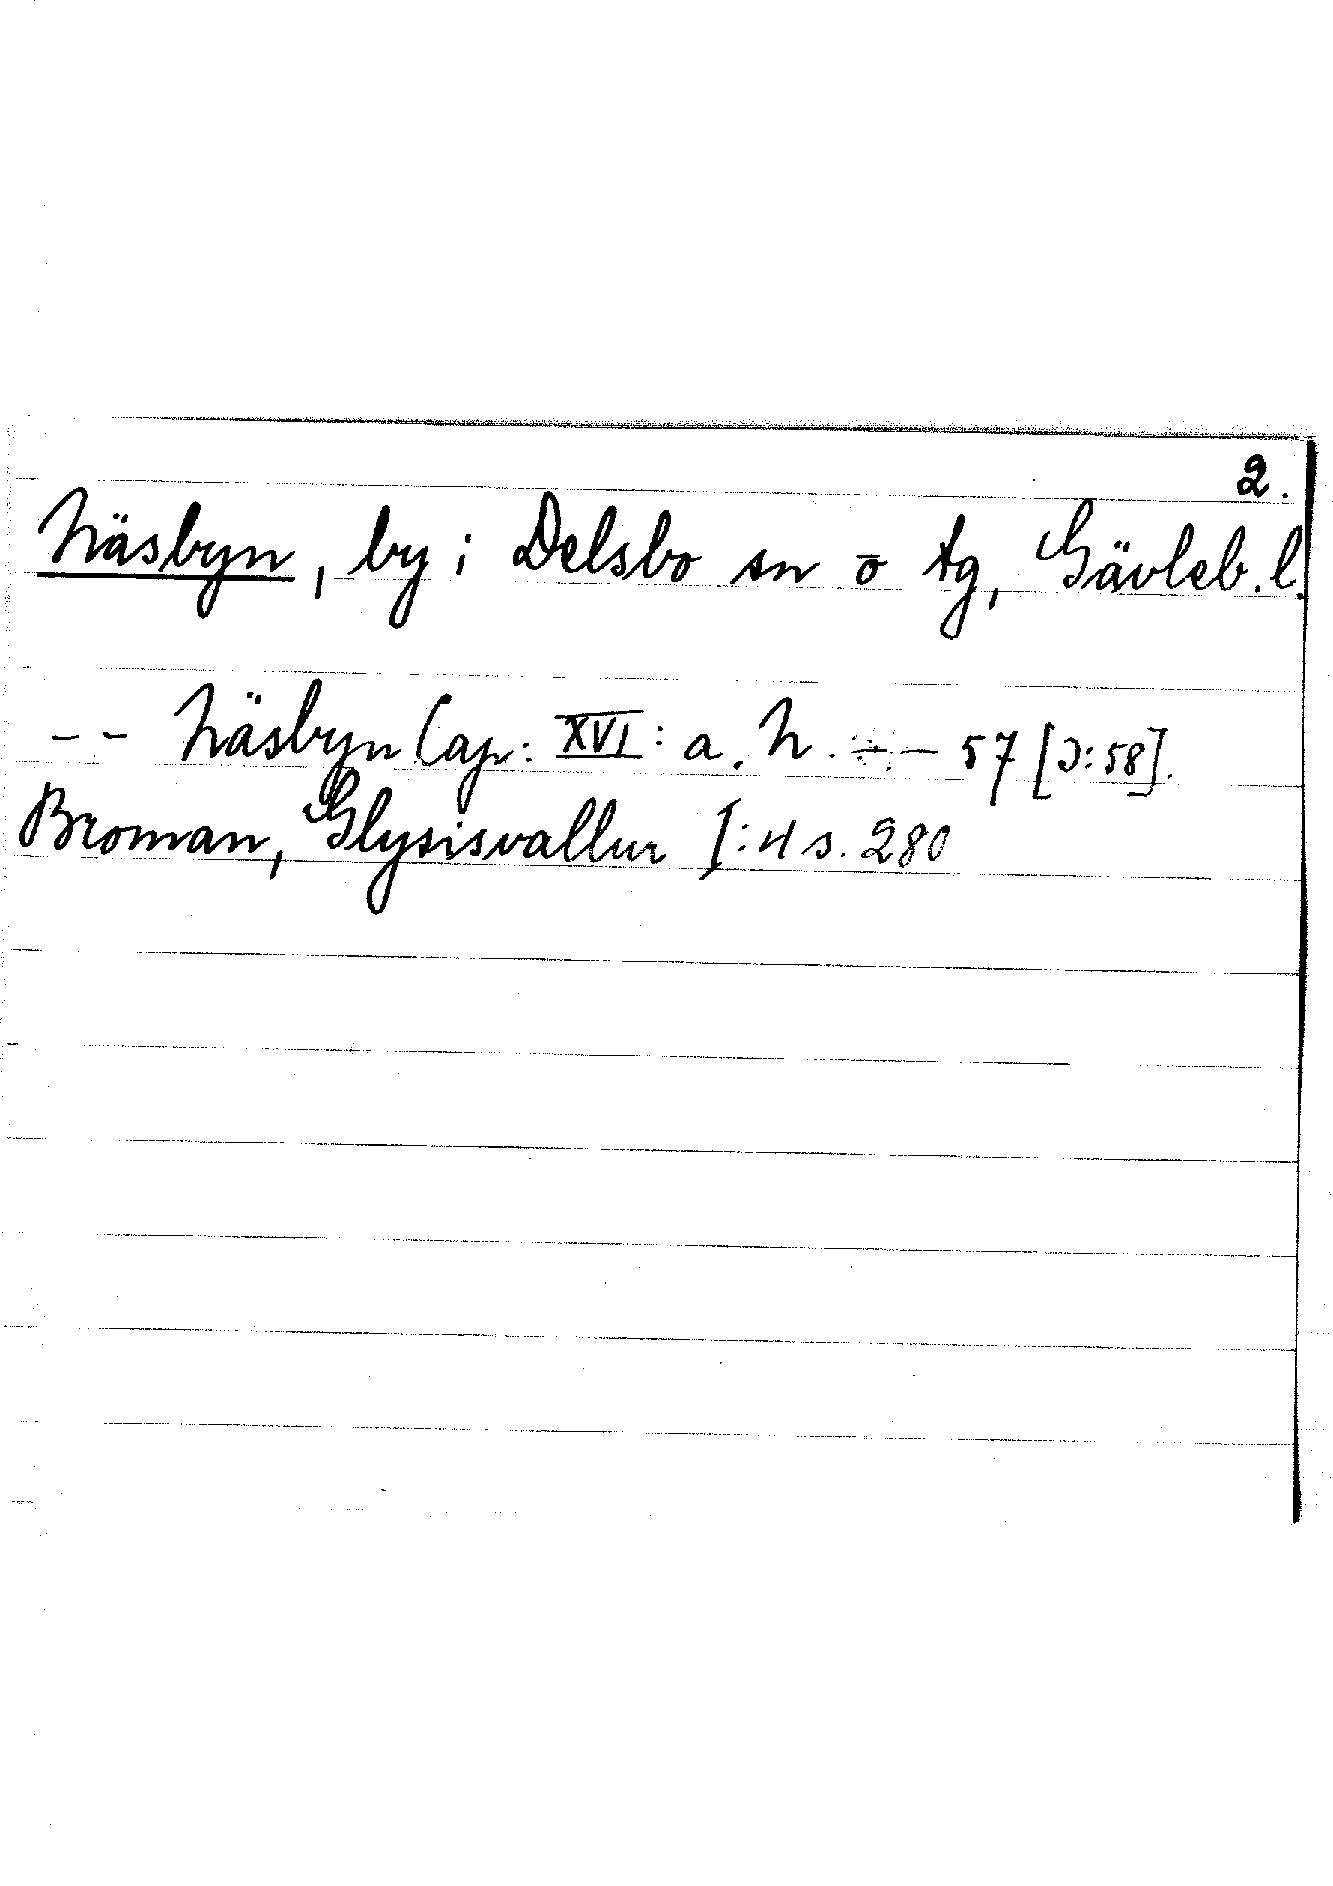 2.
Näsbyn, by i Delsbo sn o tg, Gävleb. l.
-- Näsbyn Cap: XVI: a. N. -- 57 [J:58].
Broman, Glysisvallur I:4 s. 280